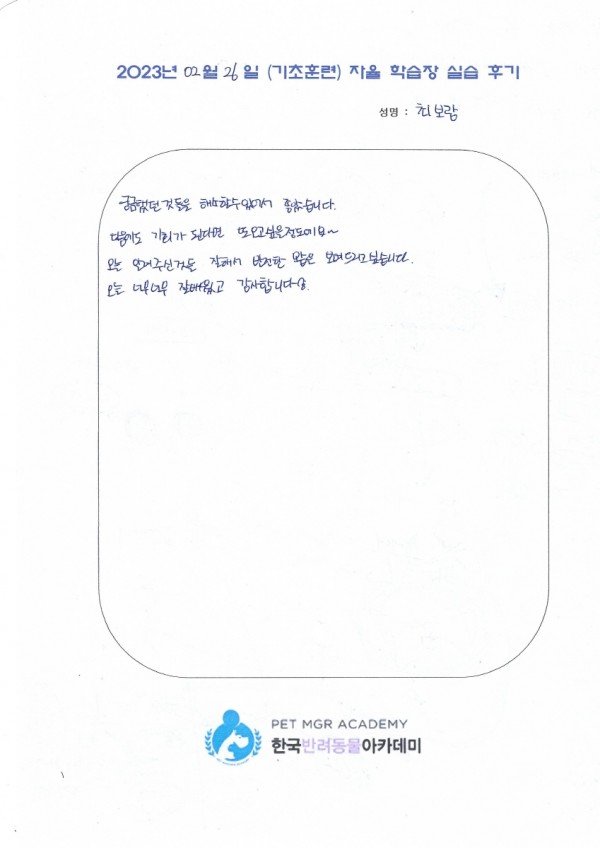 2023년 02월 26일 (기초훈련) 자율 학습장 실습 후기
성명 : 최보람
궁금했던 것들을 해소할수있어서 좋았습니다.
다음에도 기회가 된다면 또오고싶은정도에요~
오늘 알려주신것들 잘해서 발전한 모습은 보여드리고싶습니다.
오늘 너무너무 잘배웠고 감사합니다
PET MGR ACADEMY
한국반려동물아카데미